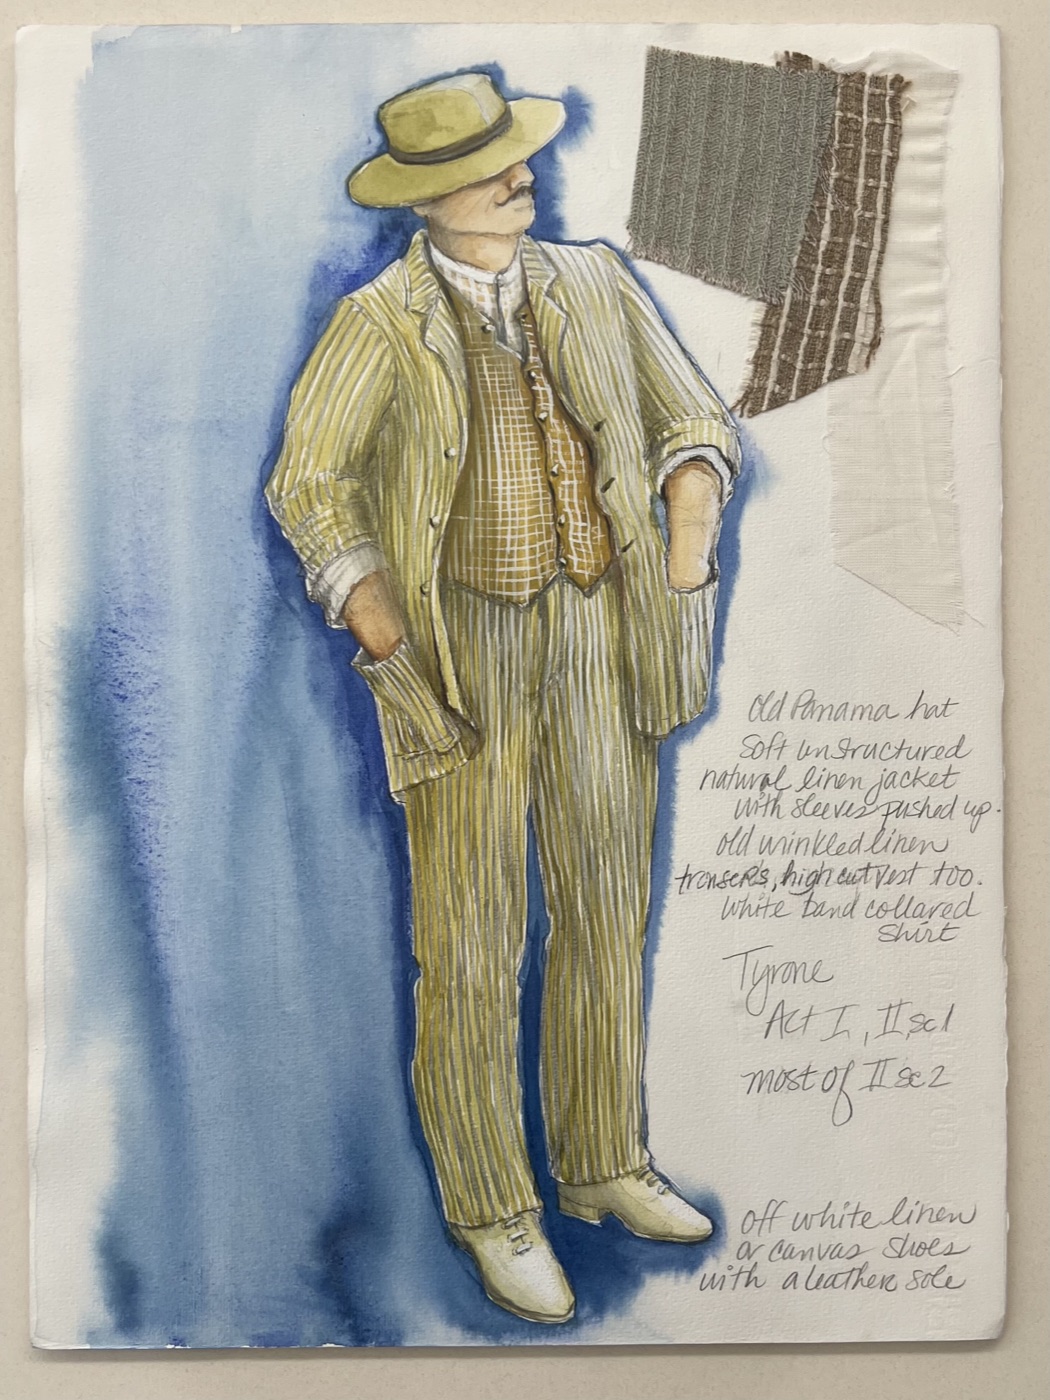 Old Panama hat
Soft unstructured
natural linen jacket
with sleeves pushed up.
old wrinkled linen
trousers, high cut vest too.
white band collared
shirt
Tyrone
Act I, II sc1
most of II sc2
off white linen
or canvas shoes
with a leather sole